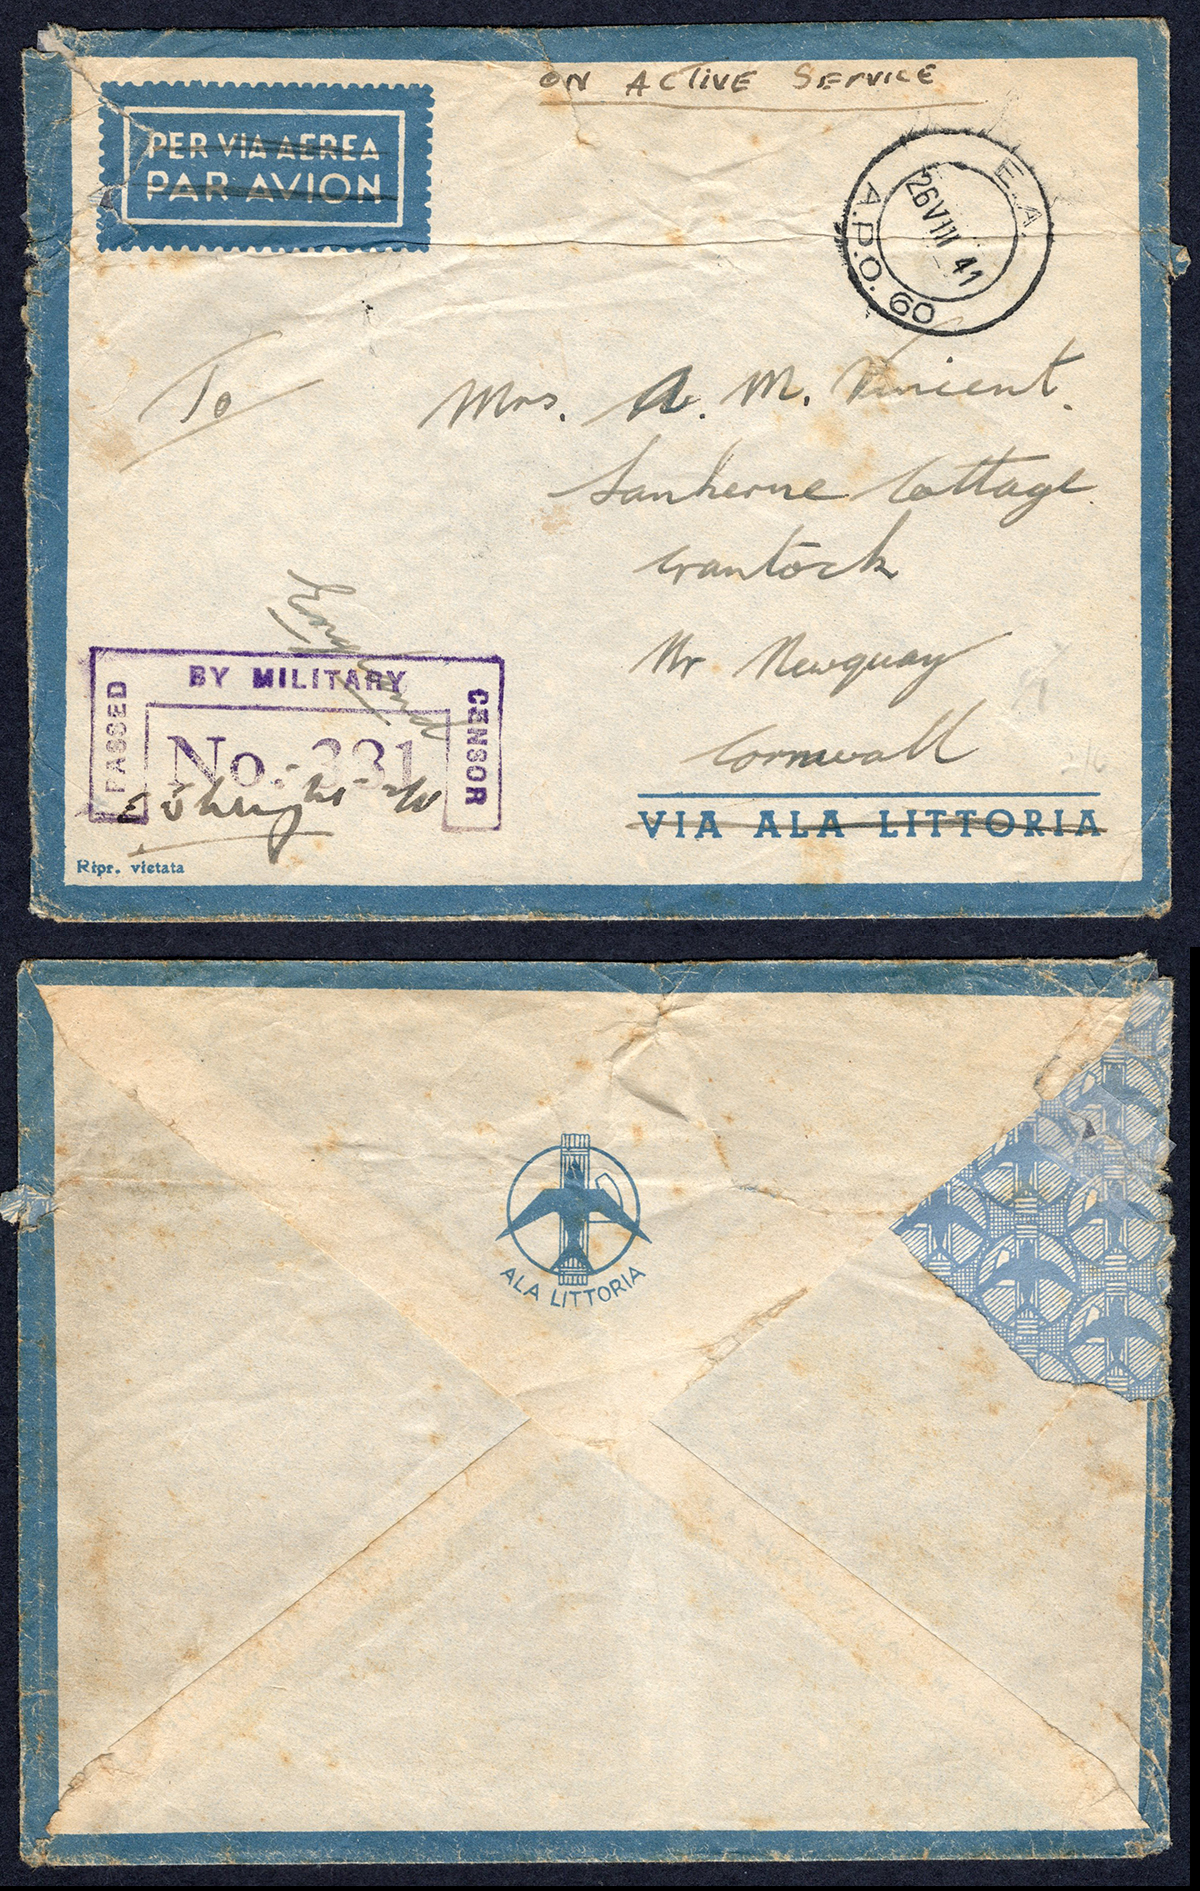 ON ACTIVE SERVICE
PER VIA AEREA
PAR AVION
E.A.
A.P.O. 60
26 VIII 41
To
Mrs. A. M. Vincent.
Lanherne Cottage
Crantock
Nr Newquay
Cornwall
England
PASSED BY MILITARY CENSOR
No. 331
VIA ALA LITTORIA
Ripr. vietata
ALA LITTORIA